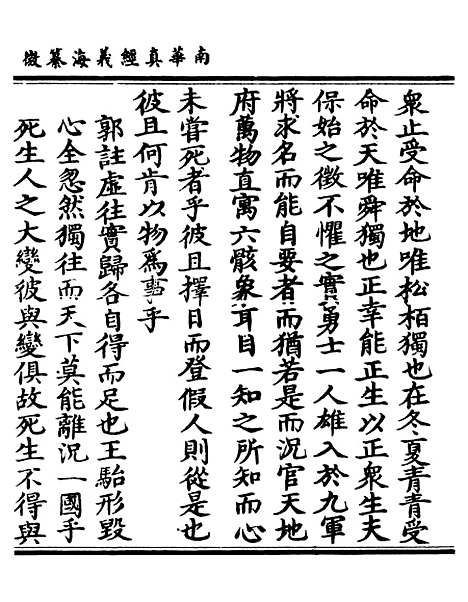 南華真經義海纂微
眾止受命於地唯松栢獨也在冬夏青青受
命於天唯舜獨也正幸能正生以正眾生夫
保始之徵不懼之實勇士一人雄入於九軍
將求名而能自要者而猶若是而況官天地
府萬物直寓六骸象耳目一知之所知而心
未嘗死者乎彼且擇日而登假人則從是也
彼且何肯以物為事乎
郭註虛往實歸各自得而足也王駘形毀
心全忽然獨往而天下莫能離況一國乎
死生人之大變彼與變俱故死生不得與